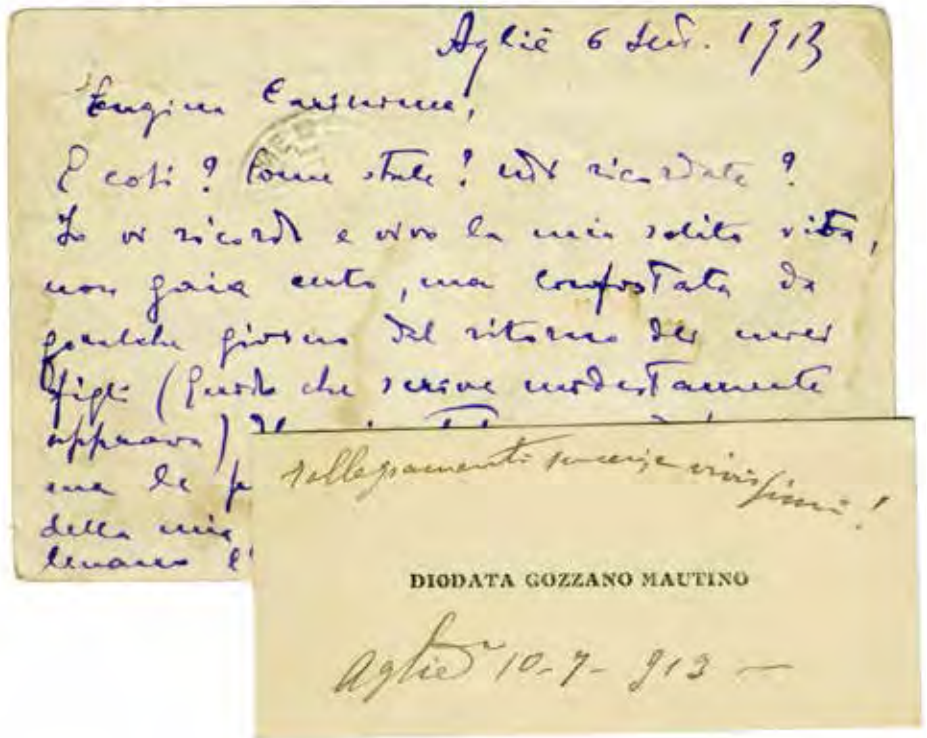 Agliè 6 Sett. 1913
Cugina Carissima,
E così? Come state? mi ricordate?
Io vi ricordo e vivo la mia solita vita,
non gaia certo, ma confortata da
qualche giorno dal ritorno dei miei
figli (Guido che scrive modestamente
approva)
ma le
della mia
levano l'
rallegramenti sinceri vivissimi!
DIODATA GOZZANO MAUTINO
Agliè 10-7-913 —